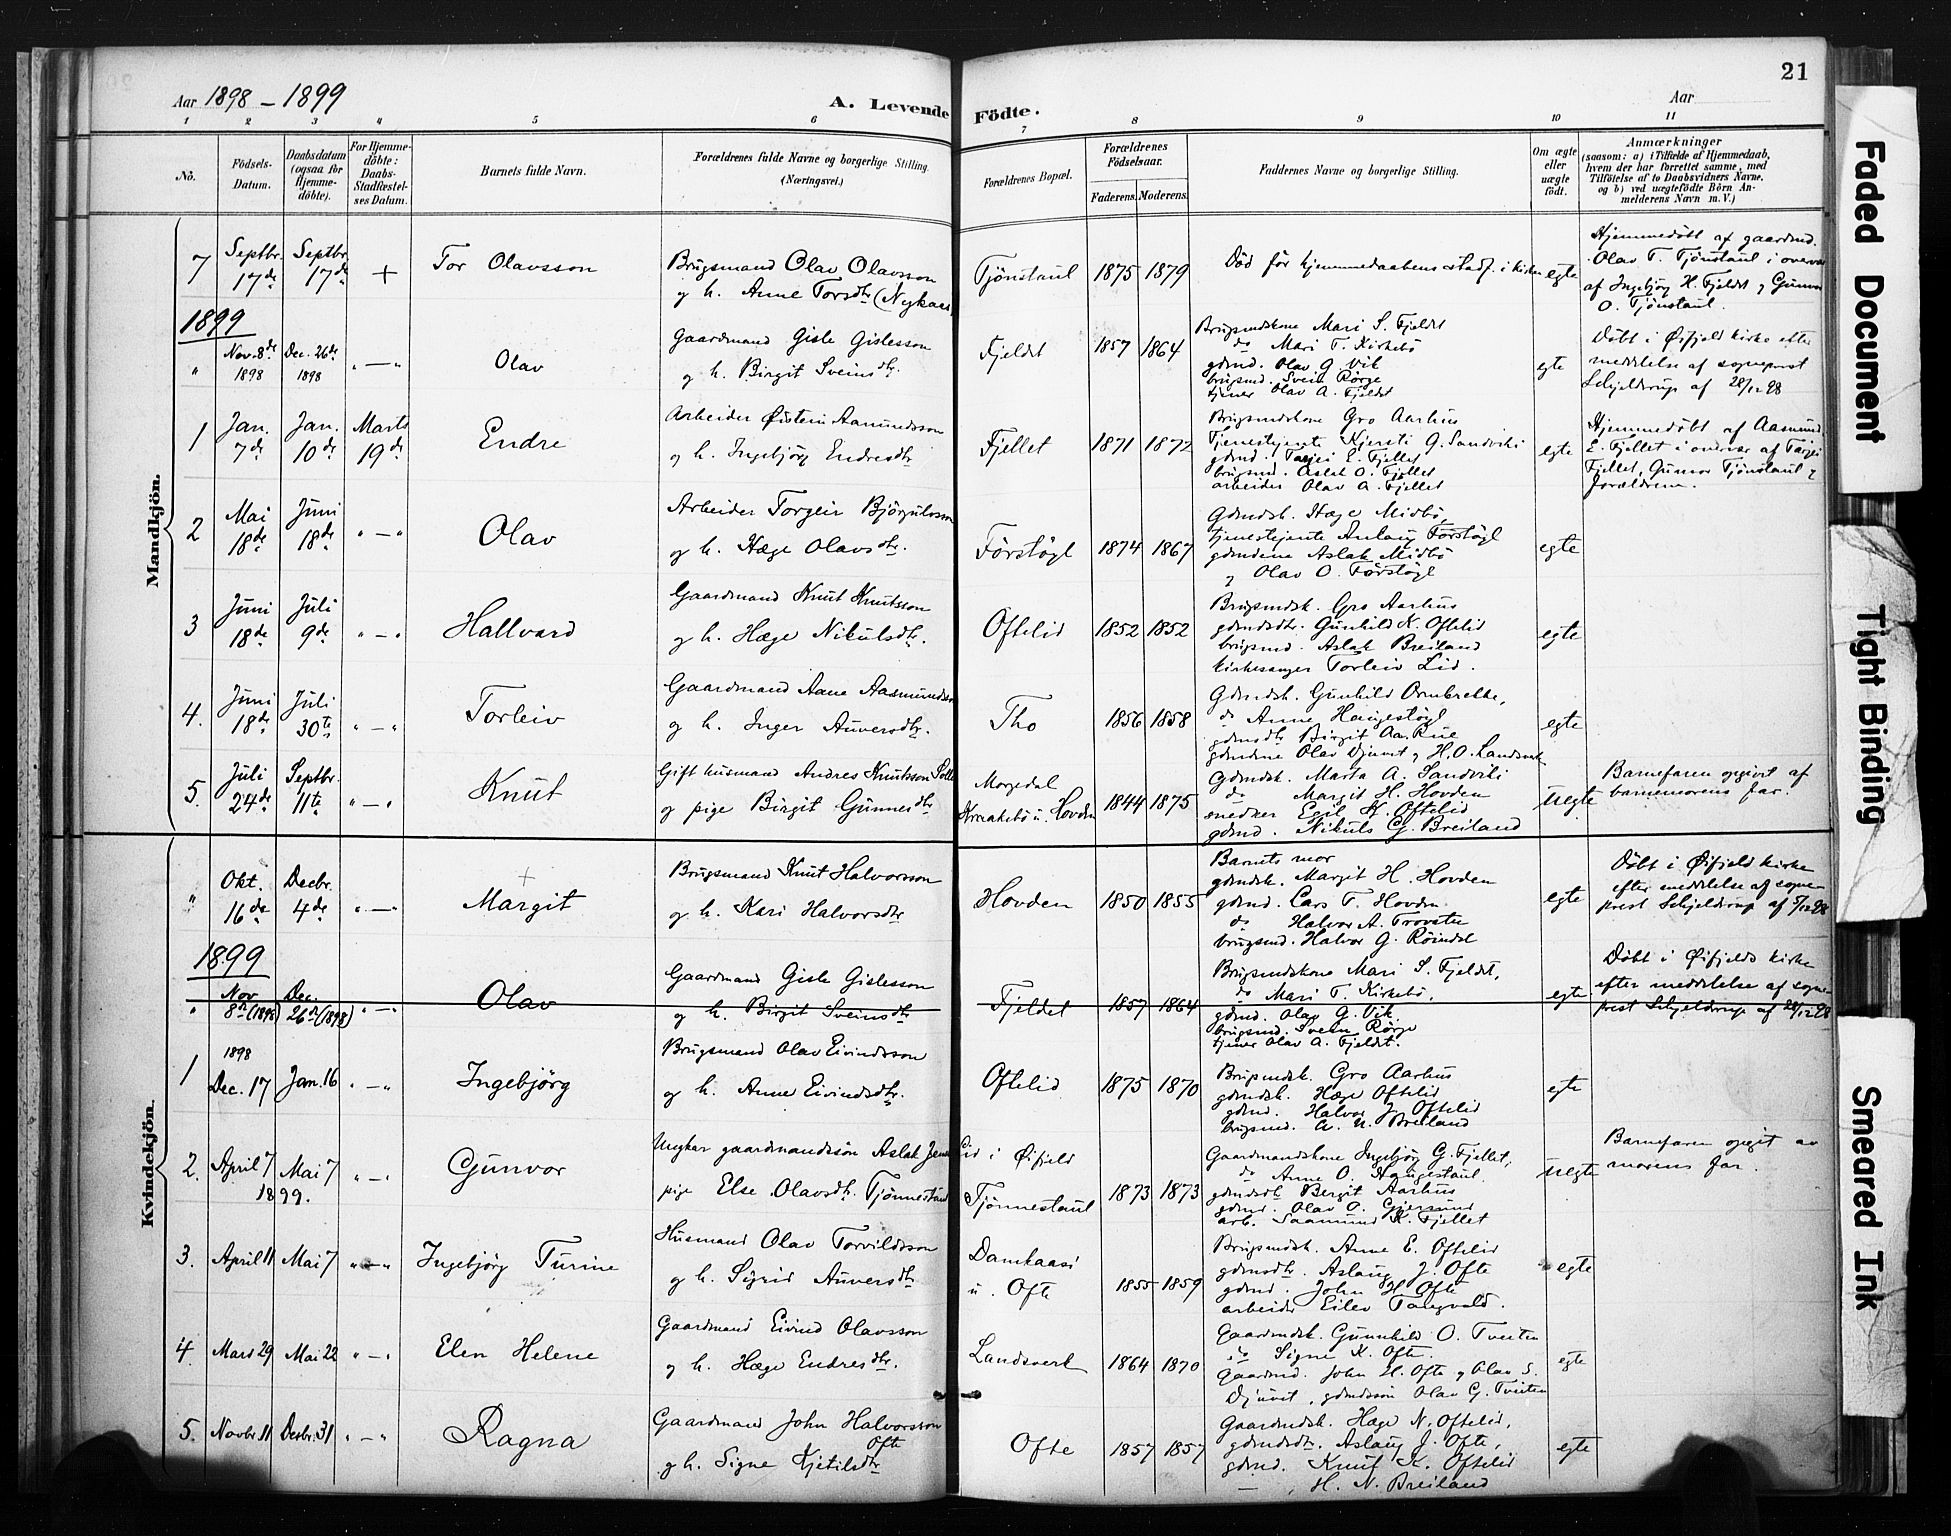 21
Aar 1898 - 1899
A. Levende Födte.
Aar
1 2 3 4 5 6 7 8 9 10 11
No.
Födsels-Datum.
Daabsdatum (ogsaa for Hjemme-döbte).
For Hjemme-döbte: Daabs-Stadfæstel-ses Datum.
Barnets fulde Navn.
Forældrenes fulde Navne og borgerlige Stilling. (Næringsvei.)
Forældrenes Bopæl.
Forældrenes Födselsaar.
Faderens. Moderens.
Faddernes Navne og borgerlige Stilling.
Om ægte eller uægte födt.
Anmærkninger
(saasom: a) i Tilfælde af Hjemmedaab, hvem der har forrettet samme, med Tilföielse af to Daabsvidners Navne, og b) ved uægtefödte Börn An-melderens Navn m. V.)
Mandkjön.
7 Septbr. 17de Septbr. 17de + Tor Olavsson
Brugsmand Olav Olavsson
og h. Anne Torsdtr (Nykaas)
Tjönstaul 1875 1879
Död för hjemmedaabens stadf. i kirken egte
Hjemmedöbt af gaardmd.
Olav T. Tjönstaul i overvær
af Ingebjörg H. Fjeldt og Gunvor
O. Tjönstaul.
1899
" Nov. 8de 1898 Dec. 26de 1898 " — " Olav
Gaardmand Gisle Gislesson
og h. Birgit Sveinsdtr.
Fjeldt 1857 1864
Brugsmdskone Mari S. Fjeldt
do Mari T. Kirkebö
gdmd. Olav G. Vik
brugsmd. Svein Rörge
tjener Olav A. Fjeldt
egte
Döbt i Öifjeld kirke efter
meddelelse af sogneprest
Schjeldrup af 28/12 98
1 Jan. 7de Jan. 10de Marts 19de Endre
Arbeider Öistein Aamundsson
og h. Ingebjörg Endresdtr
Fjellet 1871 1872
Brugsmdskone Gro Aarhus
Tjenestejente Kjersti G. Sandviki
gdmd. Targei E. Fjellet
brugsmd. Aslet O. Fjellet
arbeider Olav A. Fjellet
egte
Hjemmedöbt af Aasmund
E. Fjellet i overvær af Targei
Fjellet, Gunvor Tjönstaul og
forældrene.
2 Mai 18de Juni 18de " — " Olav
Arbeider Torgeir Björgulvsson
og h. Hæge Olavsdtr.
Förstöyl 1874 1867
Gdmdsk. Hæge Midbö,
tjenestejente Anlaug Förstöyl
gdmdene Aslak Midbö
og Olav O. Förstöyl
egte
3 Juni 18de Juli 9de " — " Hallvard
Gaardmand Knut Knutsson
og h. Hæge Nikulsdtr.
Oftelid 1852 1852
Brugsmdsk. Gro Aarhus
gdmdsdtr. Gunhild K. Oftelid
brugsmd. Aslak Breiland
kirkesanger Torleiv Lid.
egte
4. Juni 18de Juli 30te " — " Torleiv
Gaardmand Aane Aasmundsson
og h. Inger Auversdtr.
Tho 1856 1858
Gdmdsk. Gunhild Ornbrekke,
do Anne Haugestöyl
gdmdsdtr Birgit Aa. Rue
gdmdene Olav Djuvet og H. O. Landsverk
egte
5. Juli 24de Septbr. 11te " — " Knut
Gift husmand Andres Knutsson
og pige Birgit Gunnesdtr
Morgedal
Kraakebö u. Hovden 1844 1875
Gdmdsk. Marta A. Sandviki
do Margit H. Hovden
snedker Egil K. Oftelid
gdmd. Nikuls G. Breiland
uegte
Barnefaren opgivet af
barnemorens far.
Kvindekjön.
" Okt. 16de Decbr. 4de " — " Margit
Brugsmand Knut Halvorsson
og h. Kari Halvorsdtr
Hovden 1850 1855
Barnets mor
gdmdsk. Margit H. Hovden
gdmd. Lars T. Hovden
do Halvor A. Trovsten
brugsmd. Halvor G. Röindal
egte
Döbt i Öifjeld kirke
efter meddelelse af sogne-
prest Schjeldrup af 5/12 98
1899
" Nov 8de (1898) Dec. 26de (1898) " — " Olav
Gaardmand Gisle Gislesson
og h. Birgit Sveinsdtr
Fjeldet 1857 1864
Brugsmdskone Mari S. Fjeldt,
do Mari T. Kirkebö,
gdmd. Olav G. Vik
brugsmd. Svein Rörge
tjener Olav A. Fjeldt.
egte
Döbt i Öifjelds kirke
efter meddelelse af sogne-
prest Schjeldrup af 28/12 98
1 1898 Dec. 17 Jan. 16 " — " Ingebjörg
Brugsmand Olav Eivindsson
og h. Anne Eivindsdtr.
Oftelid 1875 1870
Brugsmdsk. Gro Aarhus
gdmdsk. Hæge Oftelid
gdmd. Halvor J. Oftelid
brugsmd. A. N. Breiland
egte
2. April 7 Mai 7 1899. " — " Gunvor
Ungkar gaardmandssön Aslak
pige Else Olavsdtr. Tjönnestaul
Lid i Öifjeld
Tjönnestaul 1873 1873
Gaardmandskone Ingebjörg G. Fjellet,
do Anne O. Haugestaul.
gdmdsdtr Bergit Aarhus
gdmd. Olav O. Gjersund
arb. Saamund K. Fjellet
uegte
Barnefaren opgit av
morens far.
3. April 11 Mai 7 " — " Ingebjörg Turine
Husmand Olav Torvildsson
og h. Sigrid Auversdtr
Damkaasi
u. Ofte 1855 1859
Brugsmdsk. Anne E. Oftelid
gdmdsdtr. Aslaug J. Ofte
gdmd. John H. Ofte
arbeider Eilev Talegvald.
egte
4. Mars 29 Mai 22 " — " Elen Helene
Gaardmand Eivind Olavsson
og h. Hæge Endresdtr.
Landsverk 1864 1870
Gaardmdsk. Gunnhild O. Tveiten
do Signe K. Ofte.
Gaardmd. John H. Ofte og Olav S.
Djuvet, gdmdssön Olav G. Tveiten
egte
5. Novbr. 11 Decbr. 31 " — " Ragna
Gaardmand John Halvorsson
Ofte
og h. Signe Kjetilsdtr
Ofte 1857 1857
Gaardmdsk. Hæge N. Oftelid,
gdmdsdtr. Aslaug J. Ofte,
gdmd. Knut K. Oftelid
— H. N. Breiland
egte
Faded Document
Tight Binding
Smeared Ink